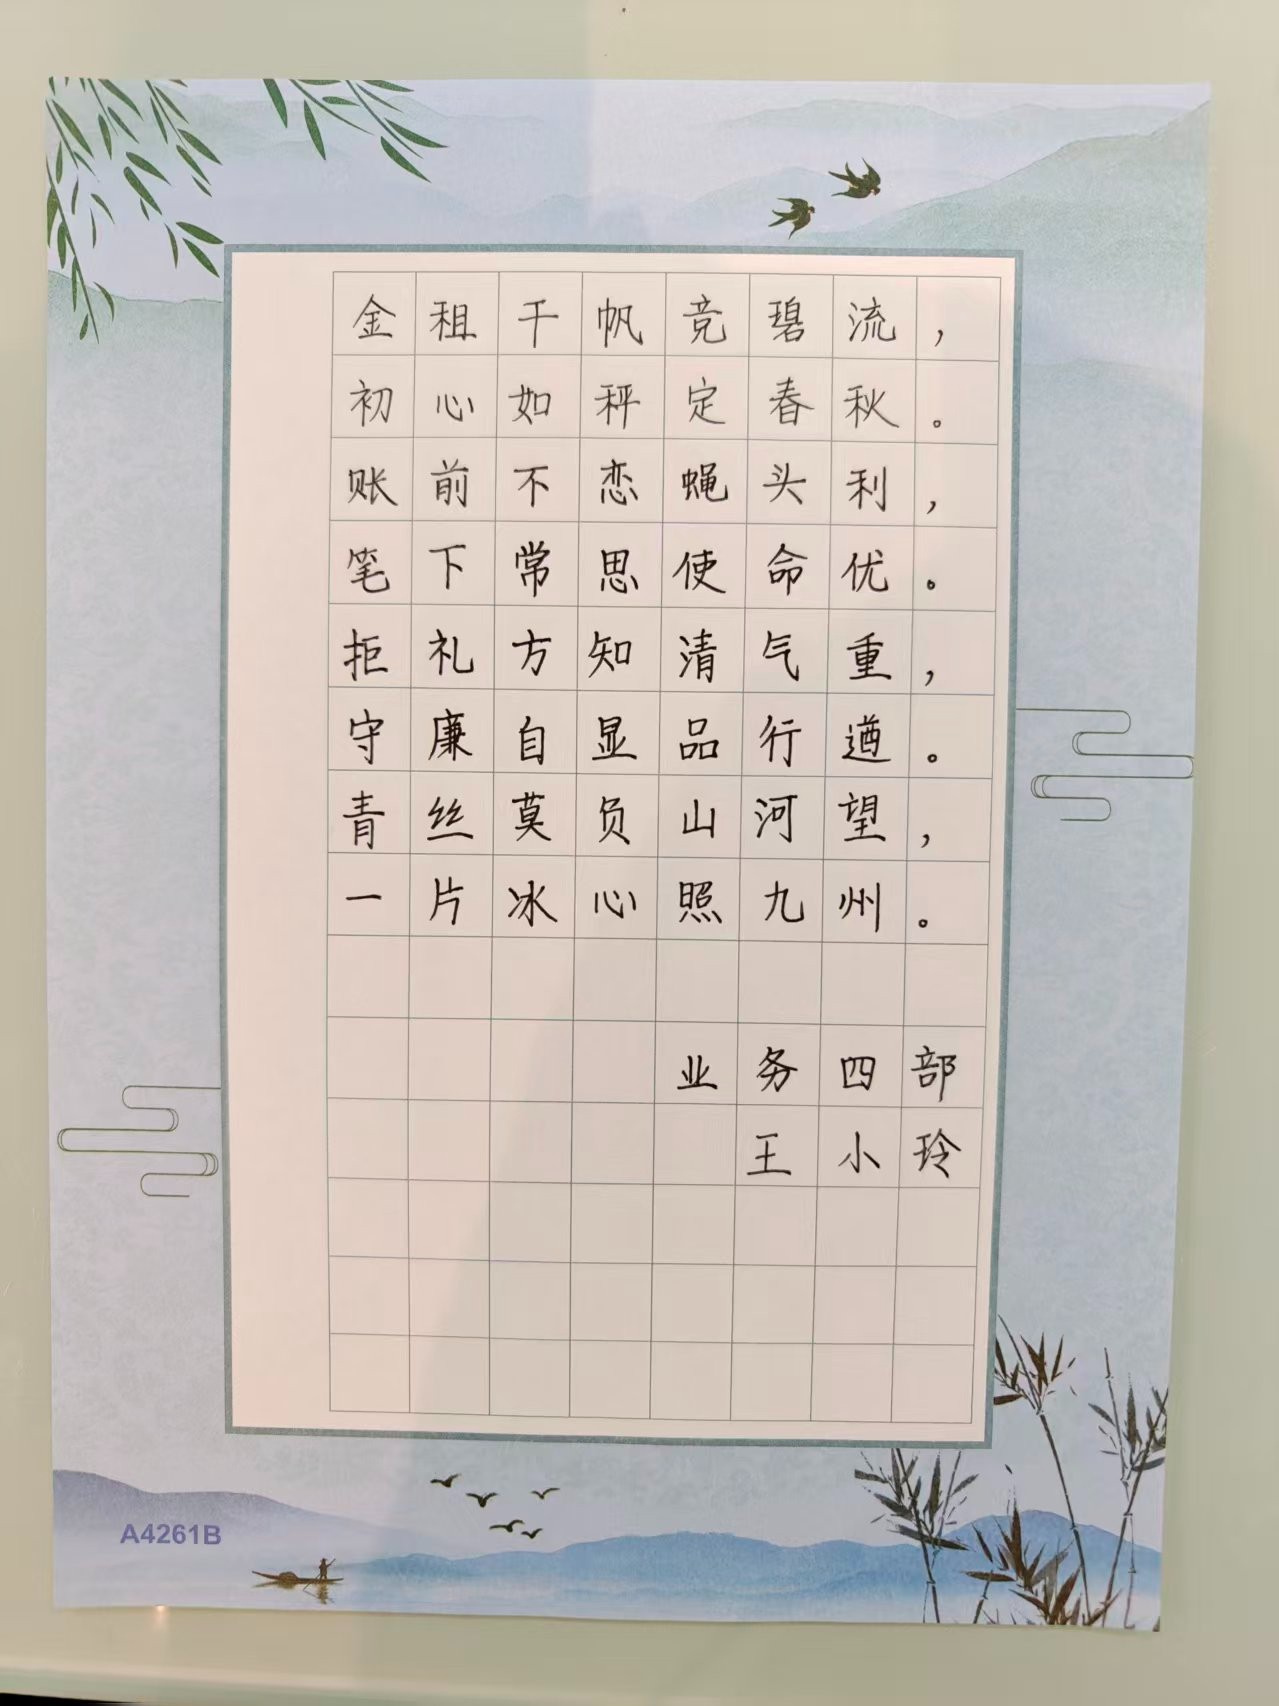 金租千帆竞碧流，
初心如秤定春秋。
账前不恋蝇头利，
笔下常思使命优。
拒礼方知清气重，
守廉自显品行遒。
青丝莫负山河望，
一片冰心照九州。
业务四部
王小玲
A4261B